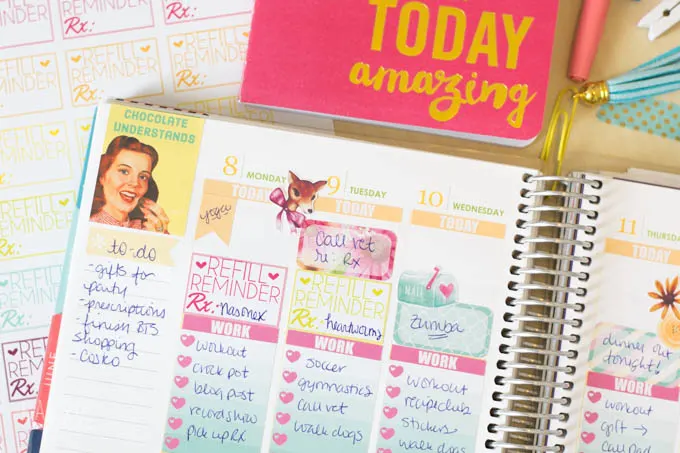 TODAY
amazing
REFILL
REMINDER
Rx:
CHOCOLATE
UNDERSTANDS
to-do
-gifts for
party
-prescriptions
-finish BTS
shopping
-Costco
8 MONDAY
TODAY
yoga
REFILL
REMINDER
Rx: nasonex
WORK
workout
crock pot
blog post
record show
pick up RX
9 TUESDAY
TODAY
Call vet
re: Rx
REFILL
REMINDER
Rx: heartworm
WORK
soccer
gymnastics
Call vet
walk dogs
10 WEDNESDAY
TODAY
MAIL
Zumba
WORK
workout
recipe club
stickers
walk dogs
11 THURSDAY
TODAY
dinner out
tonight!
WORK
workout
gift →
call Dad
JUNE